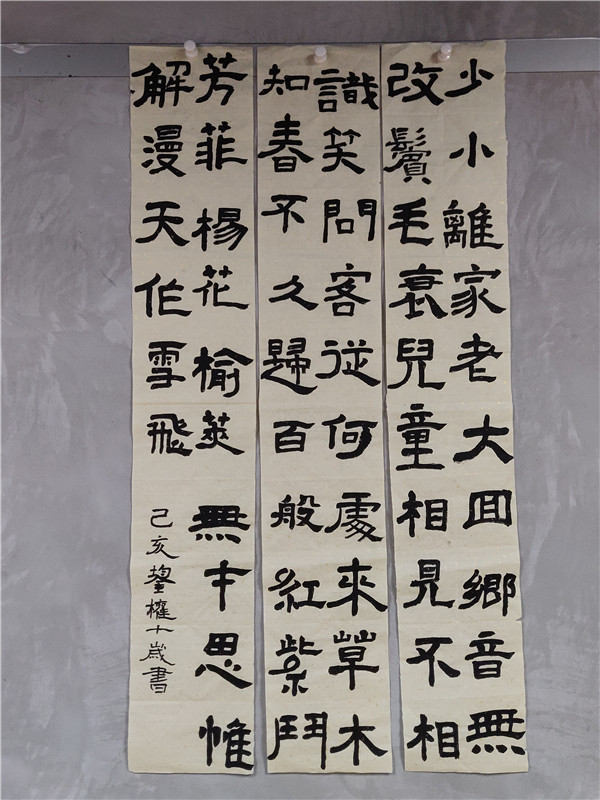 少小離家老大回鄉音無
改鬢毛衰兒童相見不相
識笑問客從何處來草木
知春不久歸百般紅紫鬥
芳菲楊花榆莢無才思惟
解漫天作雪飛
己亥權十歲書